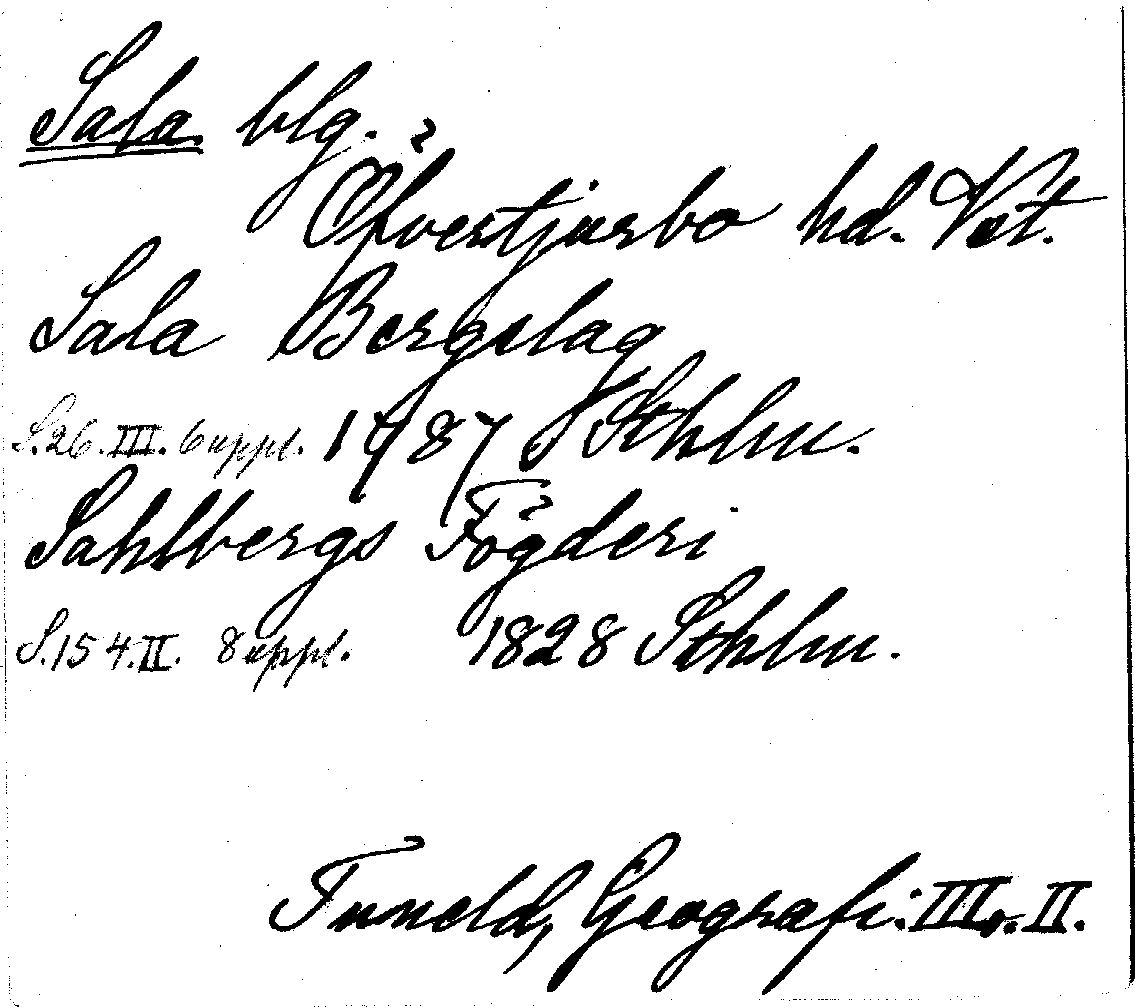 Sala blg.
Öfvertjurbo hd. Vst.
Sala Bergslag
S.26.III. 6 uppl. 1787 Sthlm.
Sahlbergs Fögderi
S.154.II. 8 uppl. 1828 Sthlm.
Tuneld, Geografi. III. o. II.